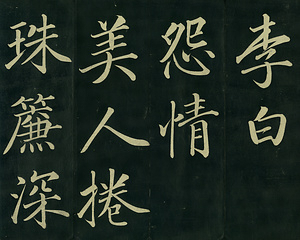 李白
怨情
美人捲
珠簾深